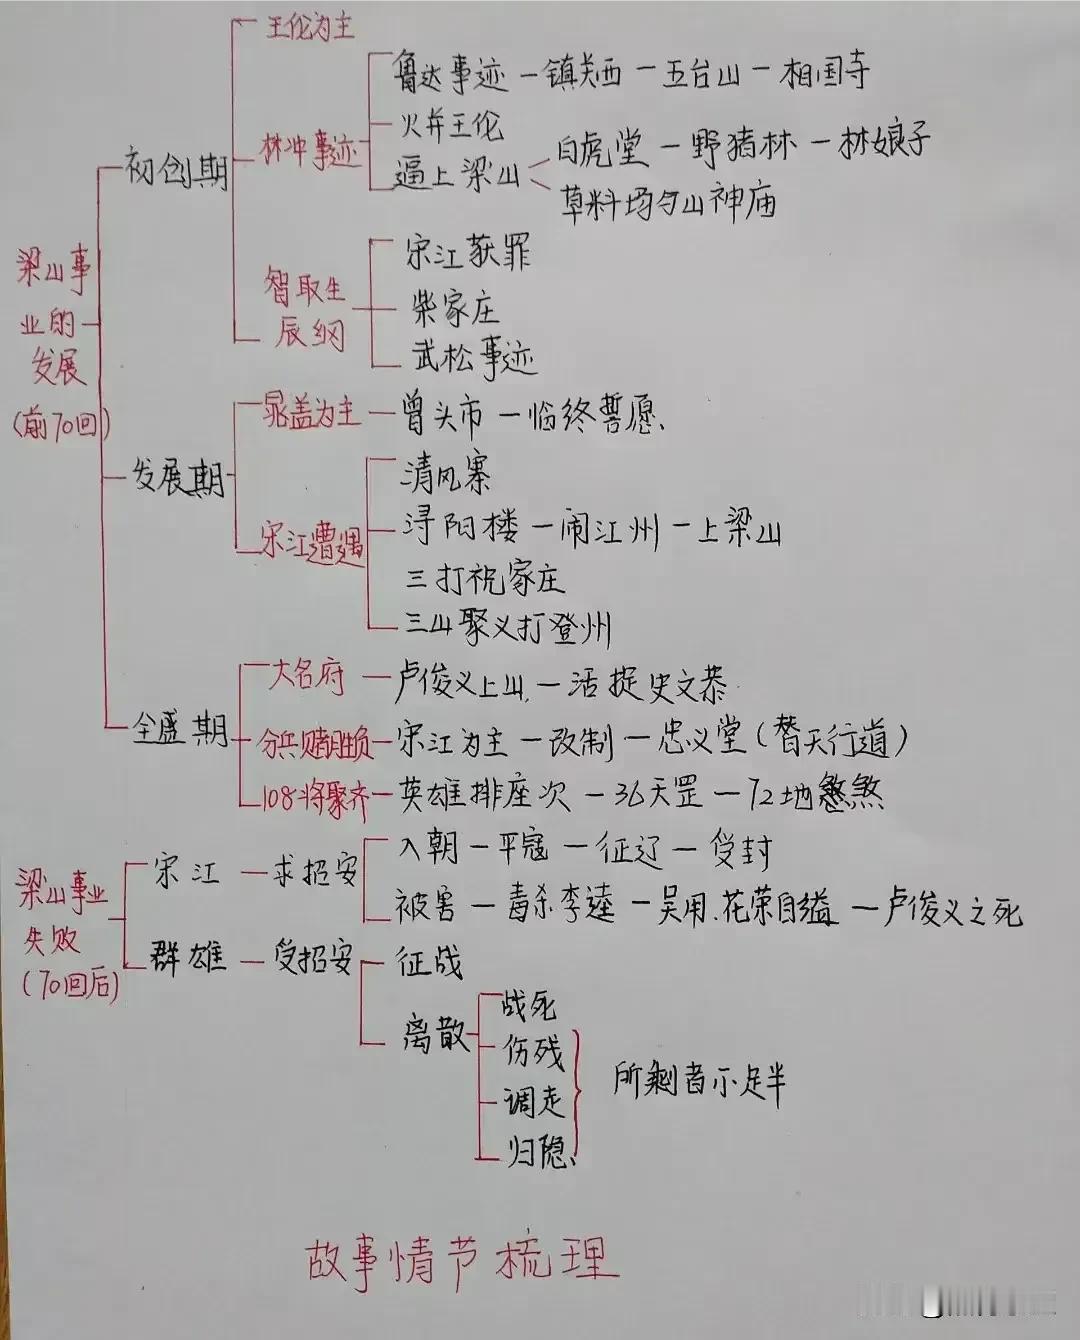 王伦为主
鲁达事迹一镇关西一五台山一相国寺
林冲事迹
火并王伦
逼上梁山
白虎堂一野猪林一林娘子
草料场与山神庙
初创期
智取生
辰纲
宋江获罪
柴家庄
武松事迹
梁山事
业的
发展
(前70回)
发展期
晁盖为主
曾头市一临终誓愿、
宋江遭遇
清风寨
浔阳楼一闹江州一上梁山
三打祝家庄
三山聚义打登州
全盛期
大名府
卢俊义上山一活捉史文恭
分兵赌胜负
宋江为主一改制一忠义堂(替天行道)
108将聚齐
英雄排座次一36天罡一72地煞
梁山事业
失败
(70回后)
宋江
求招安
入朝一平寇一征辽一受封
被害一毒杀李逵一吴用.花荣自缢一卢俊义之死
群雄
受招安
征战
离散
战死
伤残
调走
归隐、
所剩者不足半
故事情节梳理